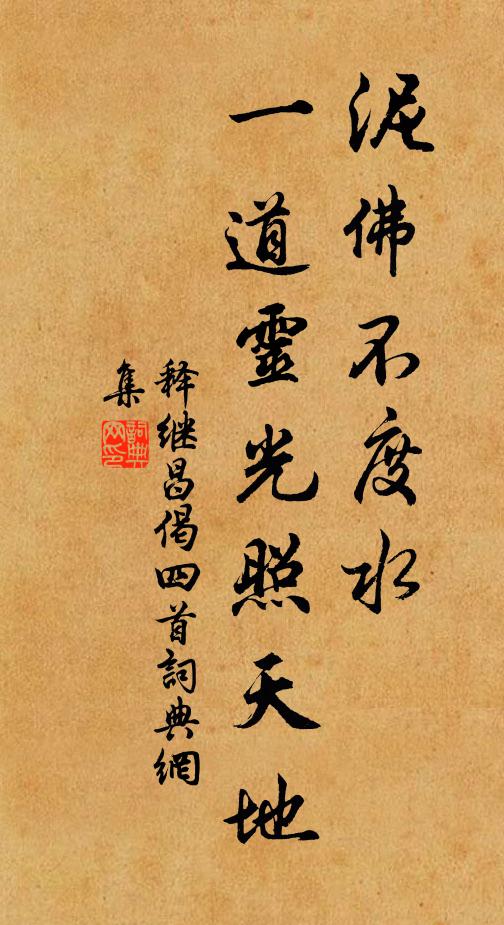 泥佛不度水
一道靈光照天地
释继昌偈四首詞典網
集
詞典
网印